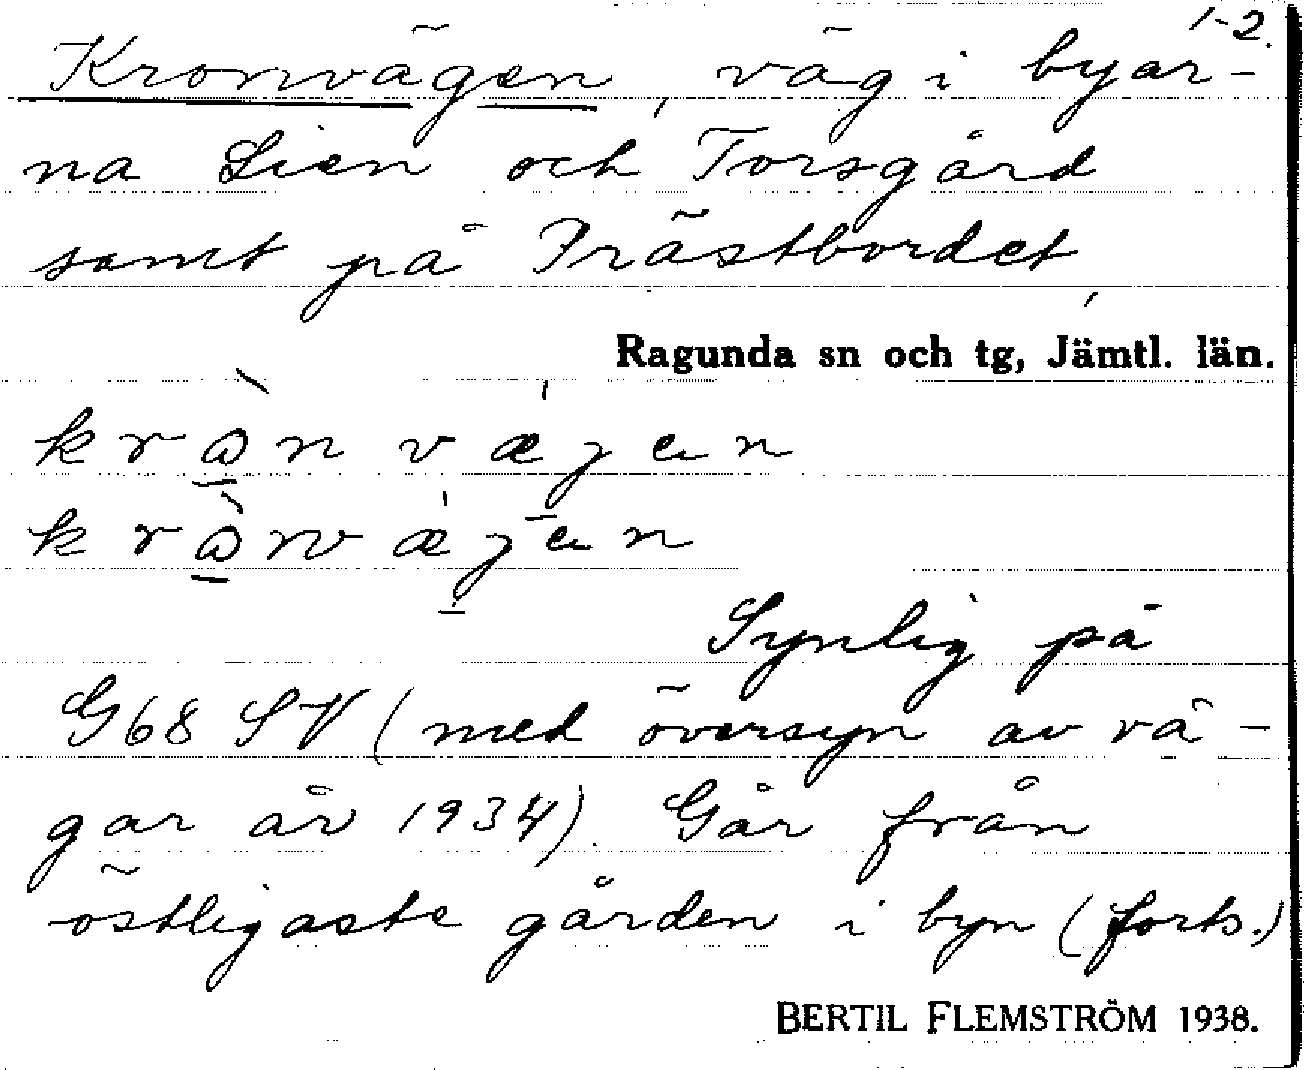 1-2.
Kronvägen, väg i byar-
na Lien och Torsgård
samt på Prästbordet,
Ragunda sn och tg, Jämtl. län.
Synlig på
G68 SV (med översyn av vä-
gar år 1934). Går från
östligaste gården i byn (forts.)
BERTIL FLEMSTRÖM 1938.